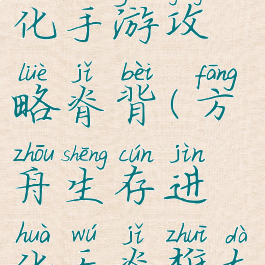 化手游攻
lüè jǐ bèi fāng
略脊背(方
zhōu shēng cún jìn
舟生存进
huà wú jǐ zhuī dà
化无脊椎大